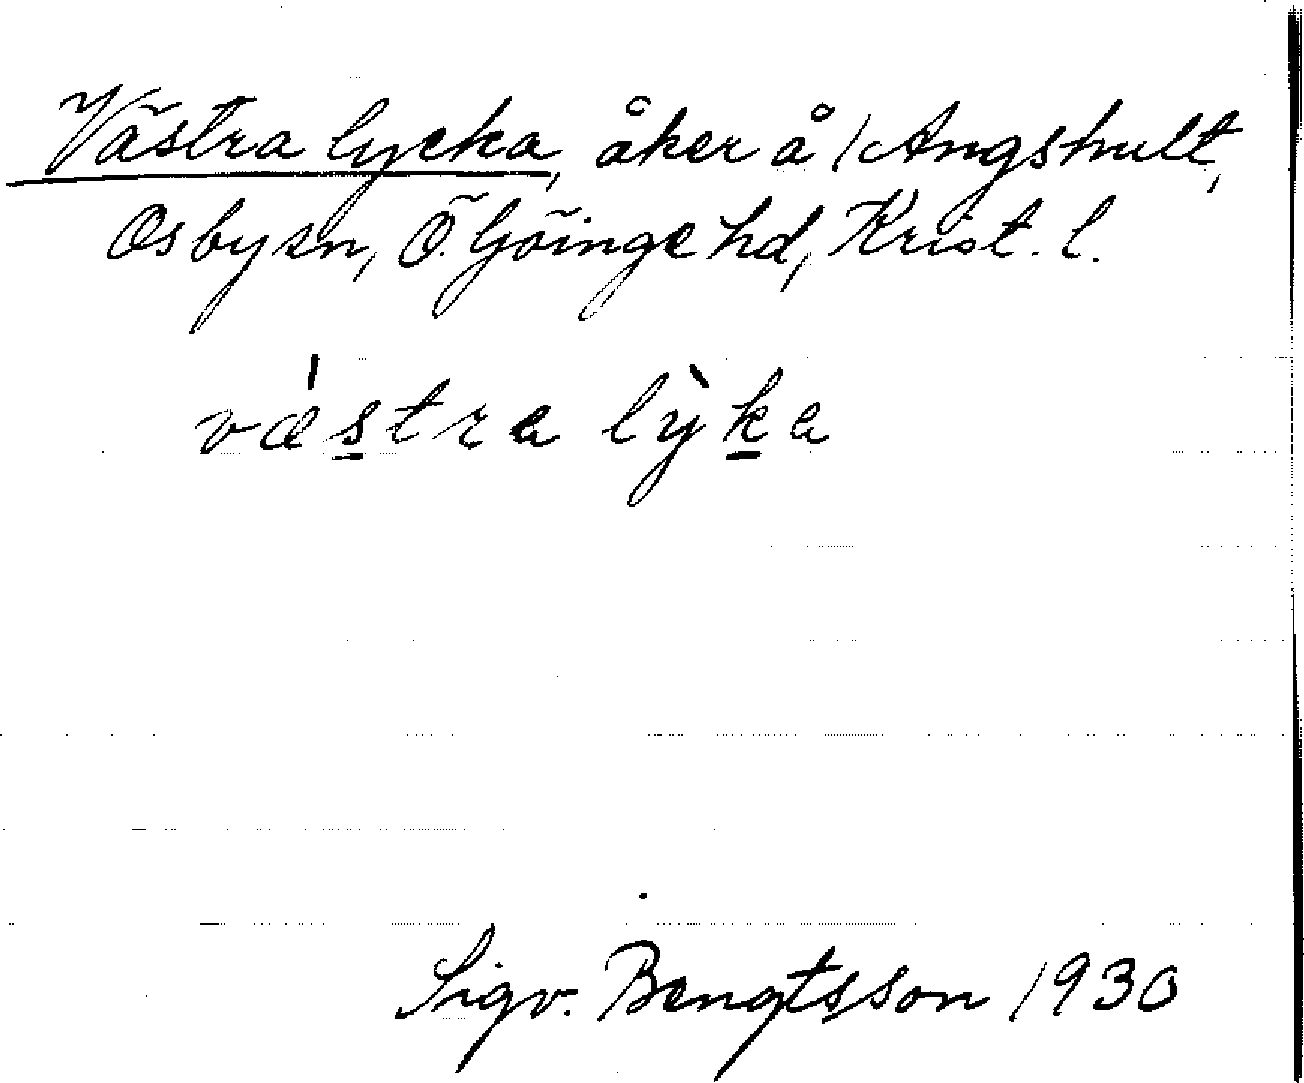 Västra lycka, åker å /Angshult,
Osby sn, Ö. Göinge hd, Krist. l.
vǽstra lỳka
Sigv. Bengtsson 1930